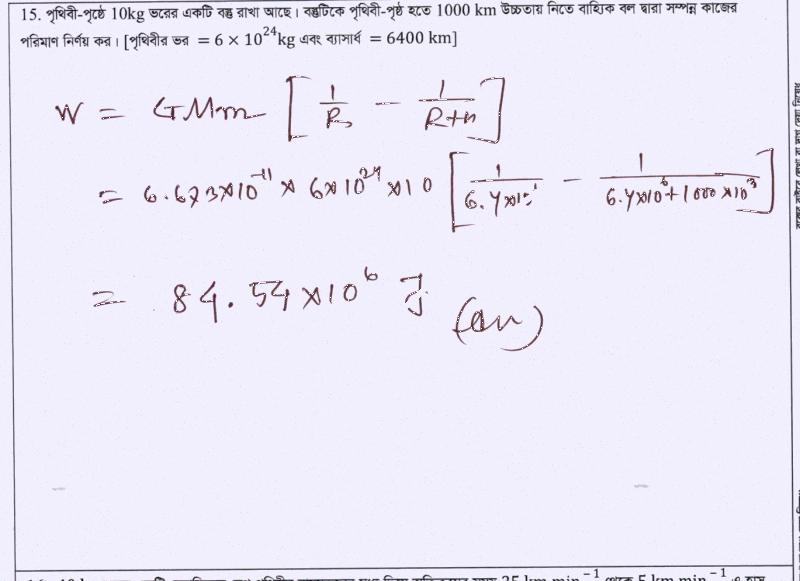 15. পৃথিবী-পৃষ্ঠে 10kg ভরের একটি বস্তু রাখা আছে। বস্তুটিকে পৃথিবী-পৃষ্ঠ হতে 1000 km উচ্চতায় নিতে বাহ্যিক বল দ্বারা সম্পন্ন কাজের
পরিমাণ নির্ণয় কর। [পৃথিবীর ভর = 6 × 10²⁴kg এবং ব্যাসার্ধ = 6400 km]
W = GMm [1/R - 1/(R+h)]
= 6.673×10⁻¹¹ × 6×10²⁴ ×10 [ - 1/(6.4×10⁶+1000×10³)]
= 84.54×10⁶ J (an)
25 km min⁻¹ থেকে 5 km min⁻¹ এ